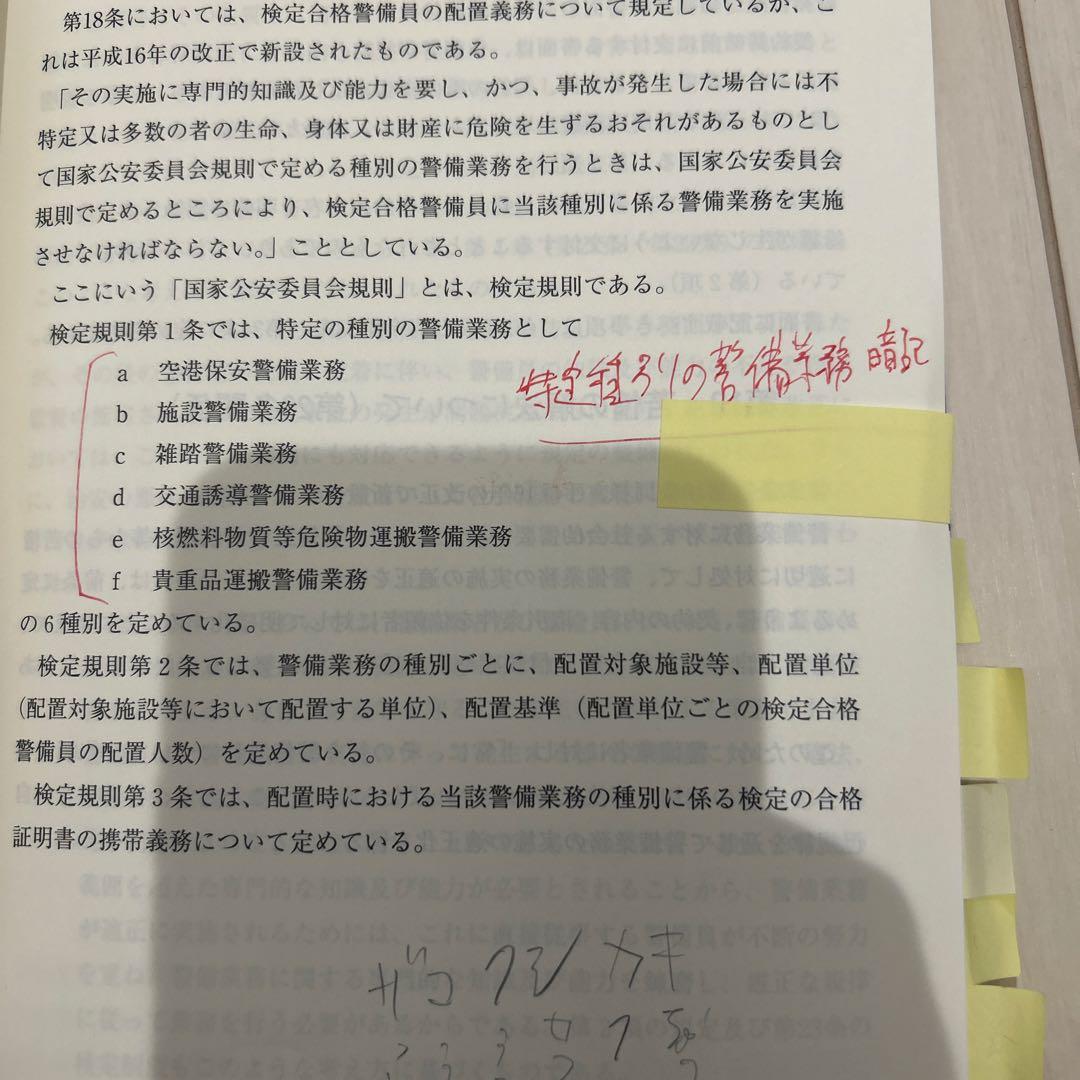 第18条においては、検定合格警備員の配置義務について規定しているが、こ
れは平成16年の改正で新設されたものである。
「その実施に専門的知識及び能力を要し、かつ、事故が発生した場合には不
特定又は多数の者の生命、身体又は財産に危険を生ずるおそれがあるものとし
て国家公安委員会規則で定める種別の警備業務を行うときは、国家公安委員会
規則で定めるところにより、検定合格警備員に当該種別に係る警備業務を実施
させなければならない。」こととしている。
ここにいう「国家公安委員会規則」とは、検定規則である。
検定規則第1条では、特定の種別の警備業務として
a 空港保安警備業務
特定種別の警備業務 暗記
b 施設警備業務
c 雑踏警備業務
d 交通誘導警備業務
e 核燃料物質等危険物運搬警備業務
f 貴重品運搬警備業務
の6種別を定めている。
検定規則第2条では、警備業務の種別ごとに、配置対象施設等、配置単位
(配置対象施設等において配置する単位)、配置基準（配置単位ごとの検定合格
警備員の配置人数）を定めている。
検定規則第3条では、配置時における当該警備業務の種別に係る検定の合格
証明書の携帯義務について定めている。